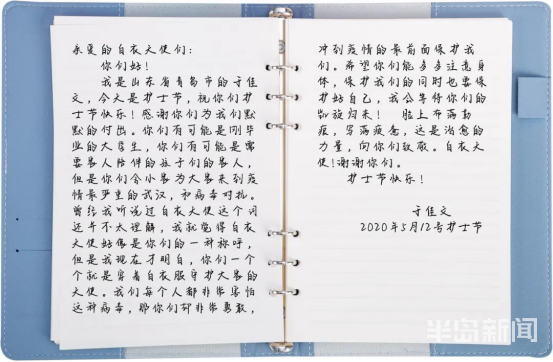 亲爱的白衣天使们:
你们好!
我是山东省青岛市的于佳
文,今天是护士节,祝你们护
士节快乐!感谢你们为我们默
默的付出。你们有可能是刚毕
业的大学生,你们有可能是需
要家人陪伴的孩子们的家人,
但是你们舍小家为大家来到疫
情最严重的武汉,和病毒对抗。
曾经我听说过白衣天使这个词
还并不太理解,我就觉得白衣
天使好像是你们的一种称呼,
但是我现在才明白,你们一个
个就是穿着白衣服守护大家的
天使。我们每个人都非常害怕
这种病毒,那你们却非常勇敢,
冲到疫情的最前面保护我
们。希望你们能多多注意身
体,保护我们的同时也要保
护好自己,我会等待你们的
凯旋归来! 脸上布满勒
痕,写满疲惫,这是治愈的
力量,向你们致敬。白衣天
使!谢谢你们。
护士节快乐!
于佳文
2020年5月12号护士节
半岛新闻